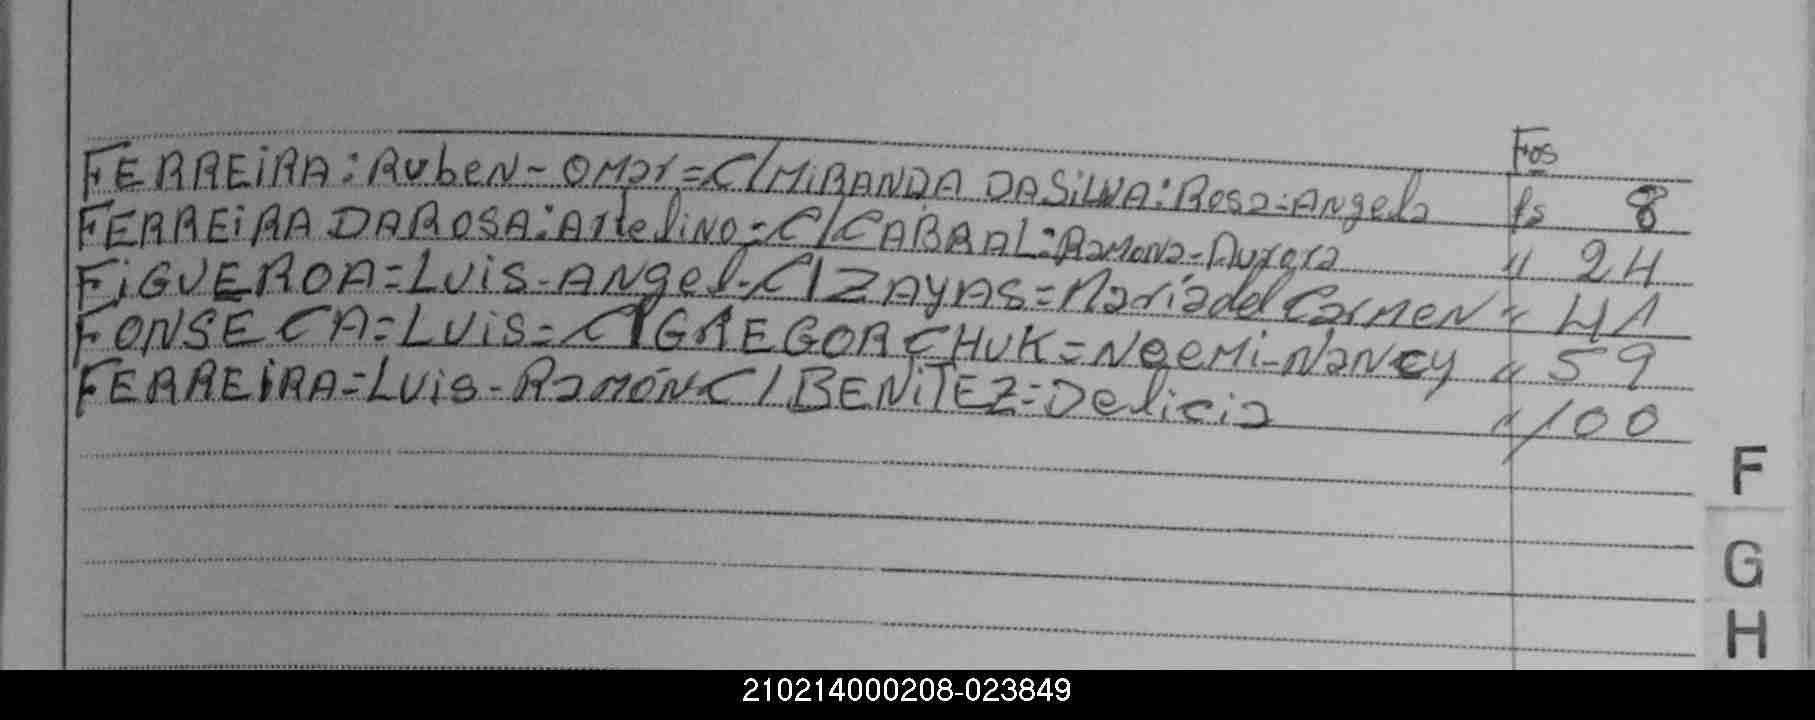 Fos
FERREiRA: Ruben - Omar = C/ MiRANDA DASiLVA: Rosa - Angela fs 8
FERREiRA DAROSA: Artelino = C/ CABRAL: Ramona - Aurora " 24
FiGUEROA = Luis - Angel - C/ ZAYAS = Maria del Carmen " 41
FONSECA = Luis = C/ GREGORCHUK = Noemi - Nancy " 59
FERREiRA = Luis - Ramón C/ BENiTEZ = Delicia " 100
F
G
H
210214000208-023849